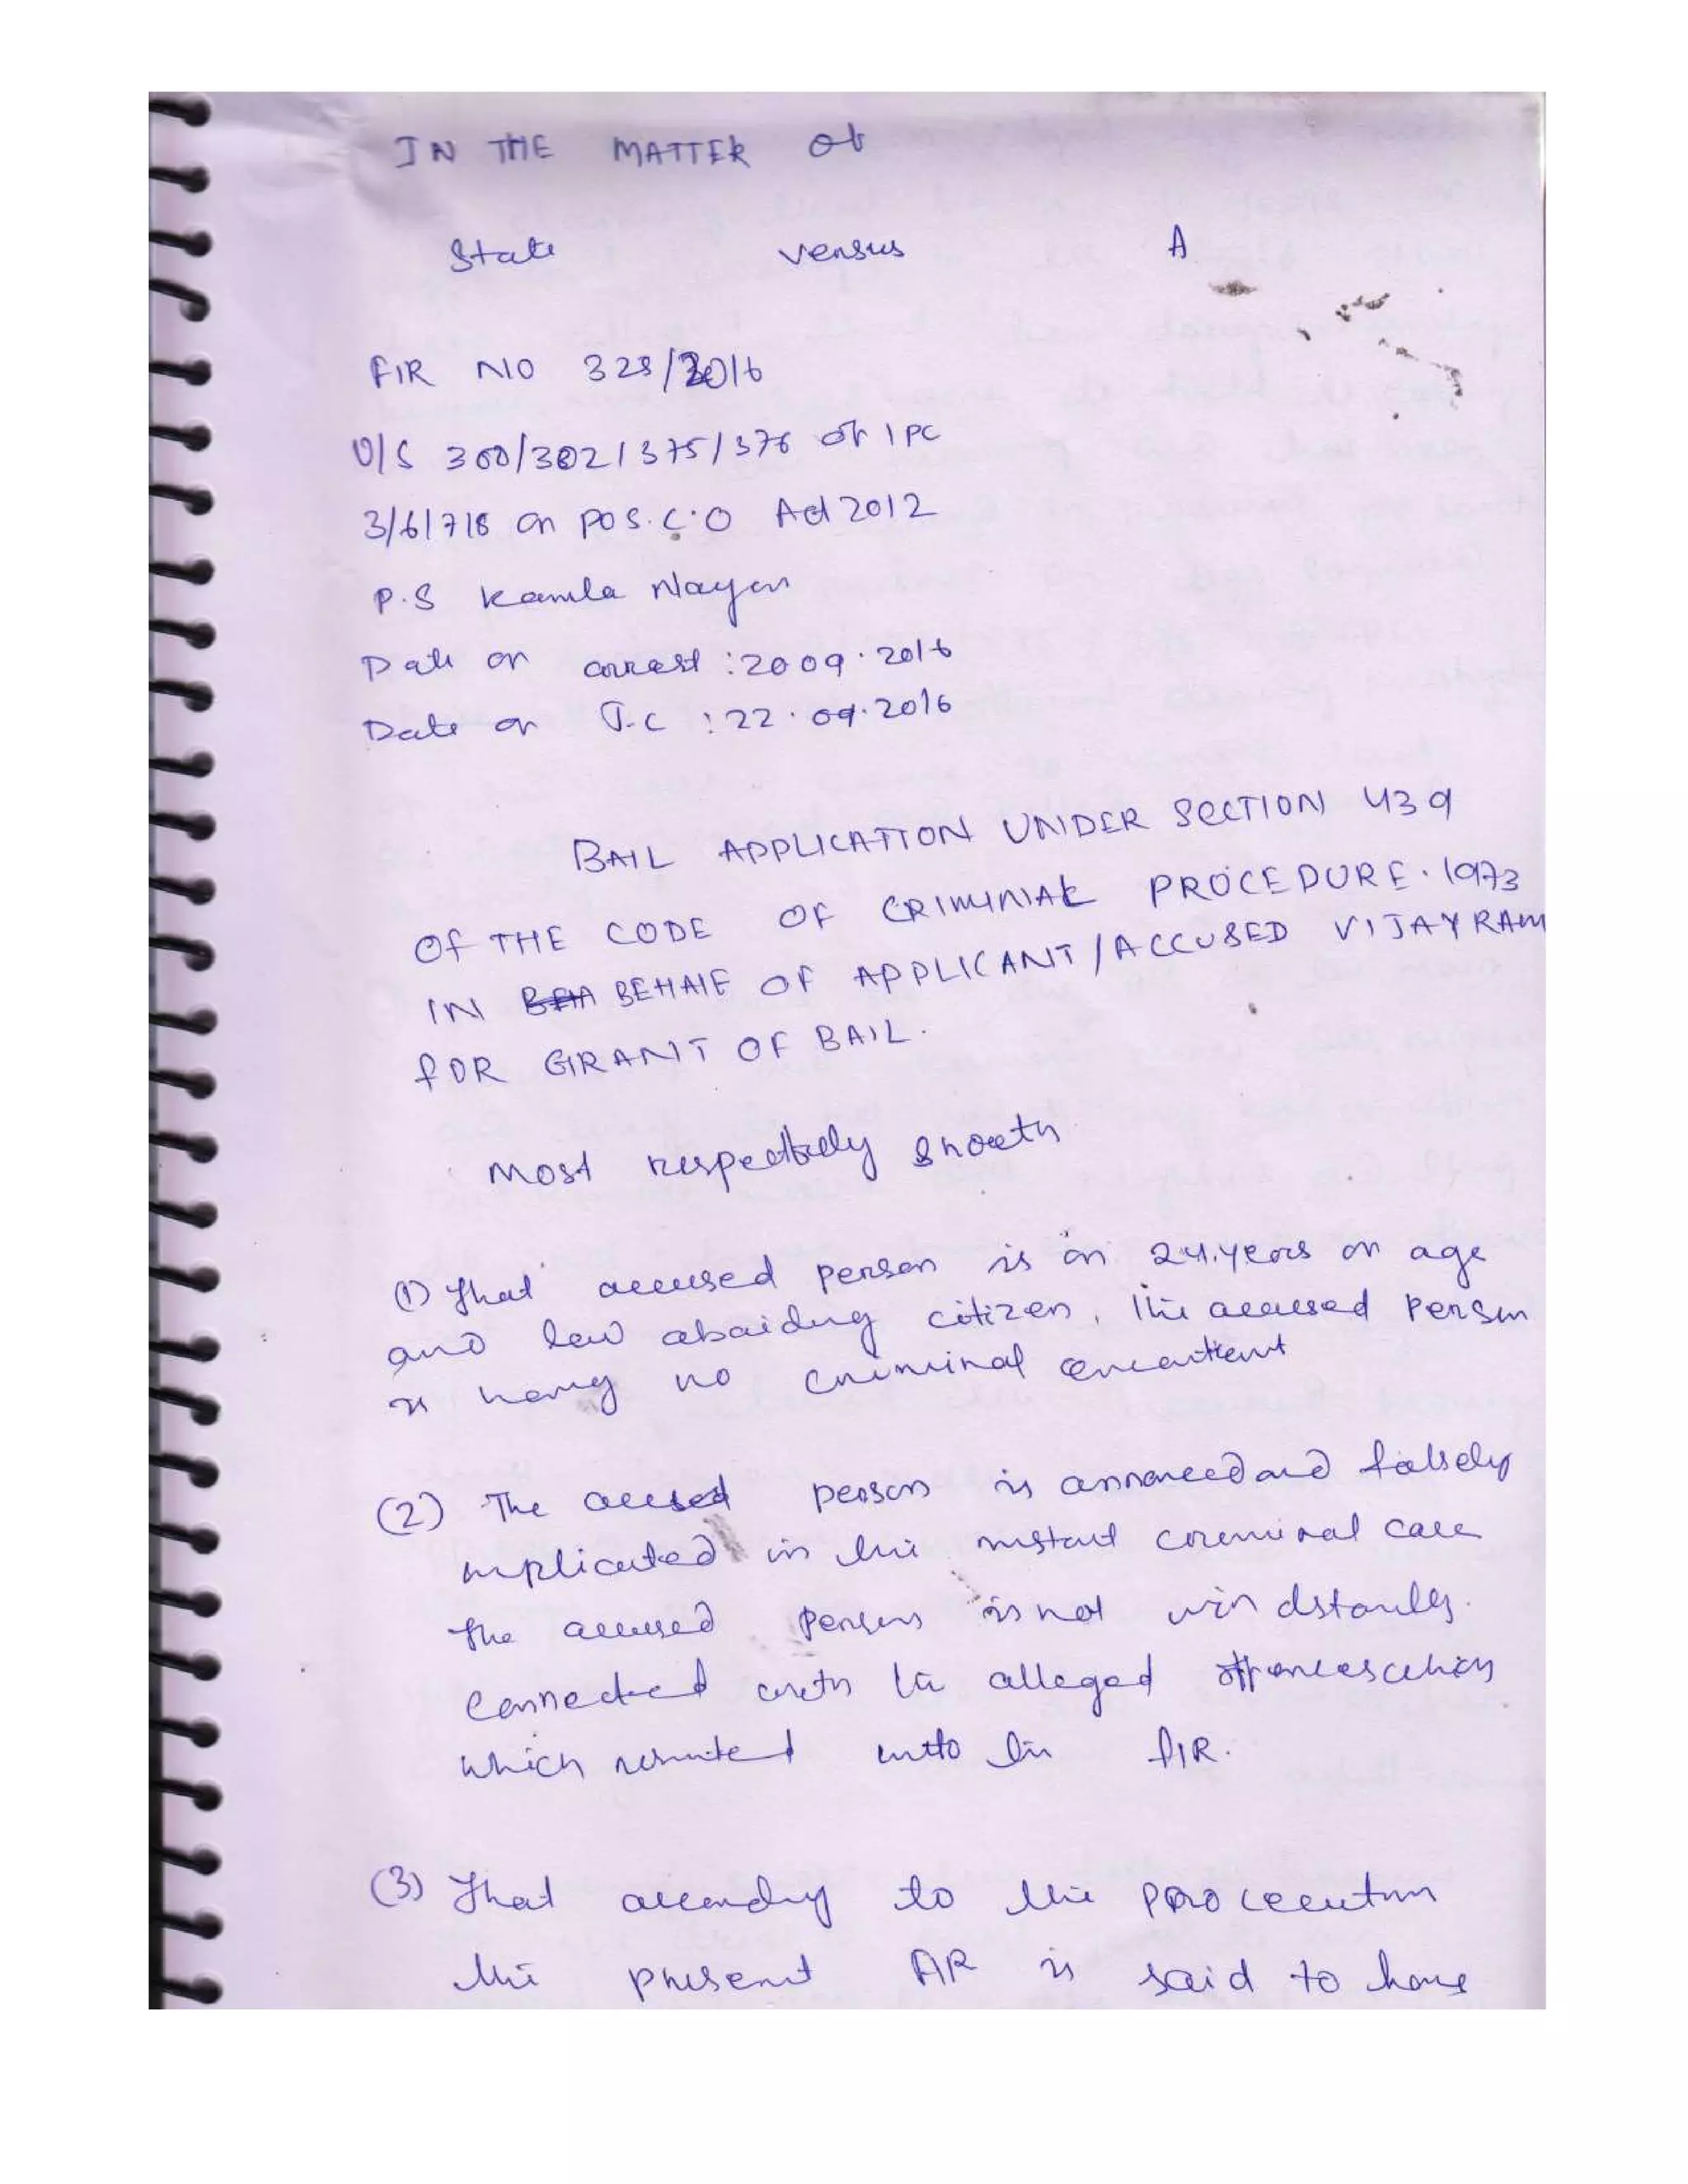 IN THE MATTER of
State versus A
FIR NO 328/2016
U/S 300/302/375/376 of IPC
3/6/7/8 on POS.C.O Act 2012
P.S Kamla Nagar
Date on arrest : 20 09. 2016
Date on J.C : 22. 09. 2016
BAIL APPLICATION UNDER SECTION 439
Of THE CODE OF CRIMINAL PROCEDURE. 1973
IN BEHALF OF APPLICANT / ACCUSED VIJAY RAM
FOR GRANT OF BAIL.
Most respectfully showeth
(1) That accused person is on 24. years on age
and law abaiding citizen, the accused person
is having no criminal
(2) The accused person is and falsely
implicated in the instant criminal case
The accused person is not
connected with the alleged
which resulted into the FIR.
(3) That according to the
the present FIR is said to have